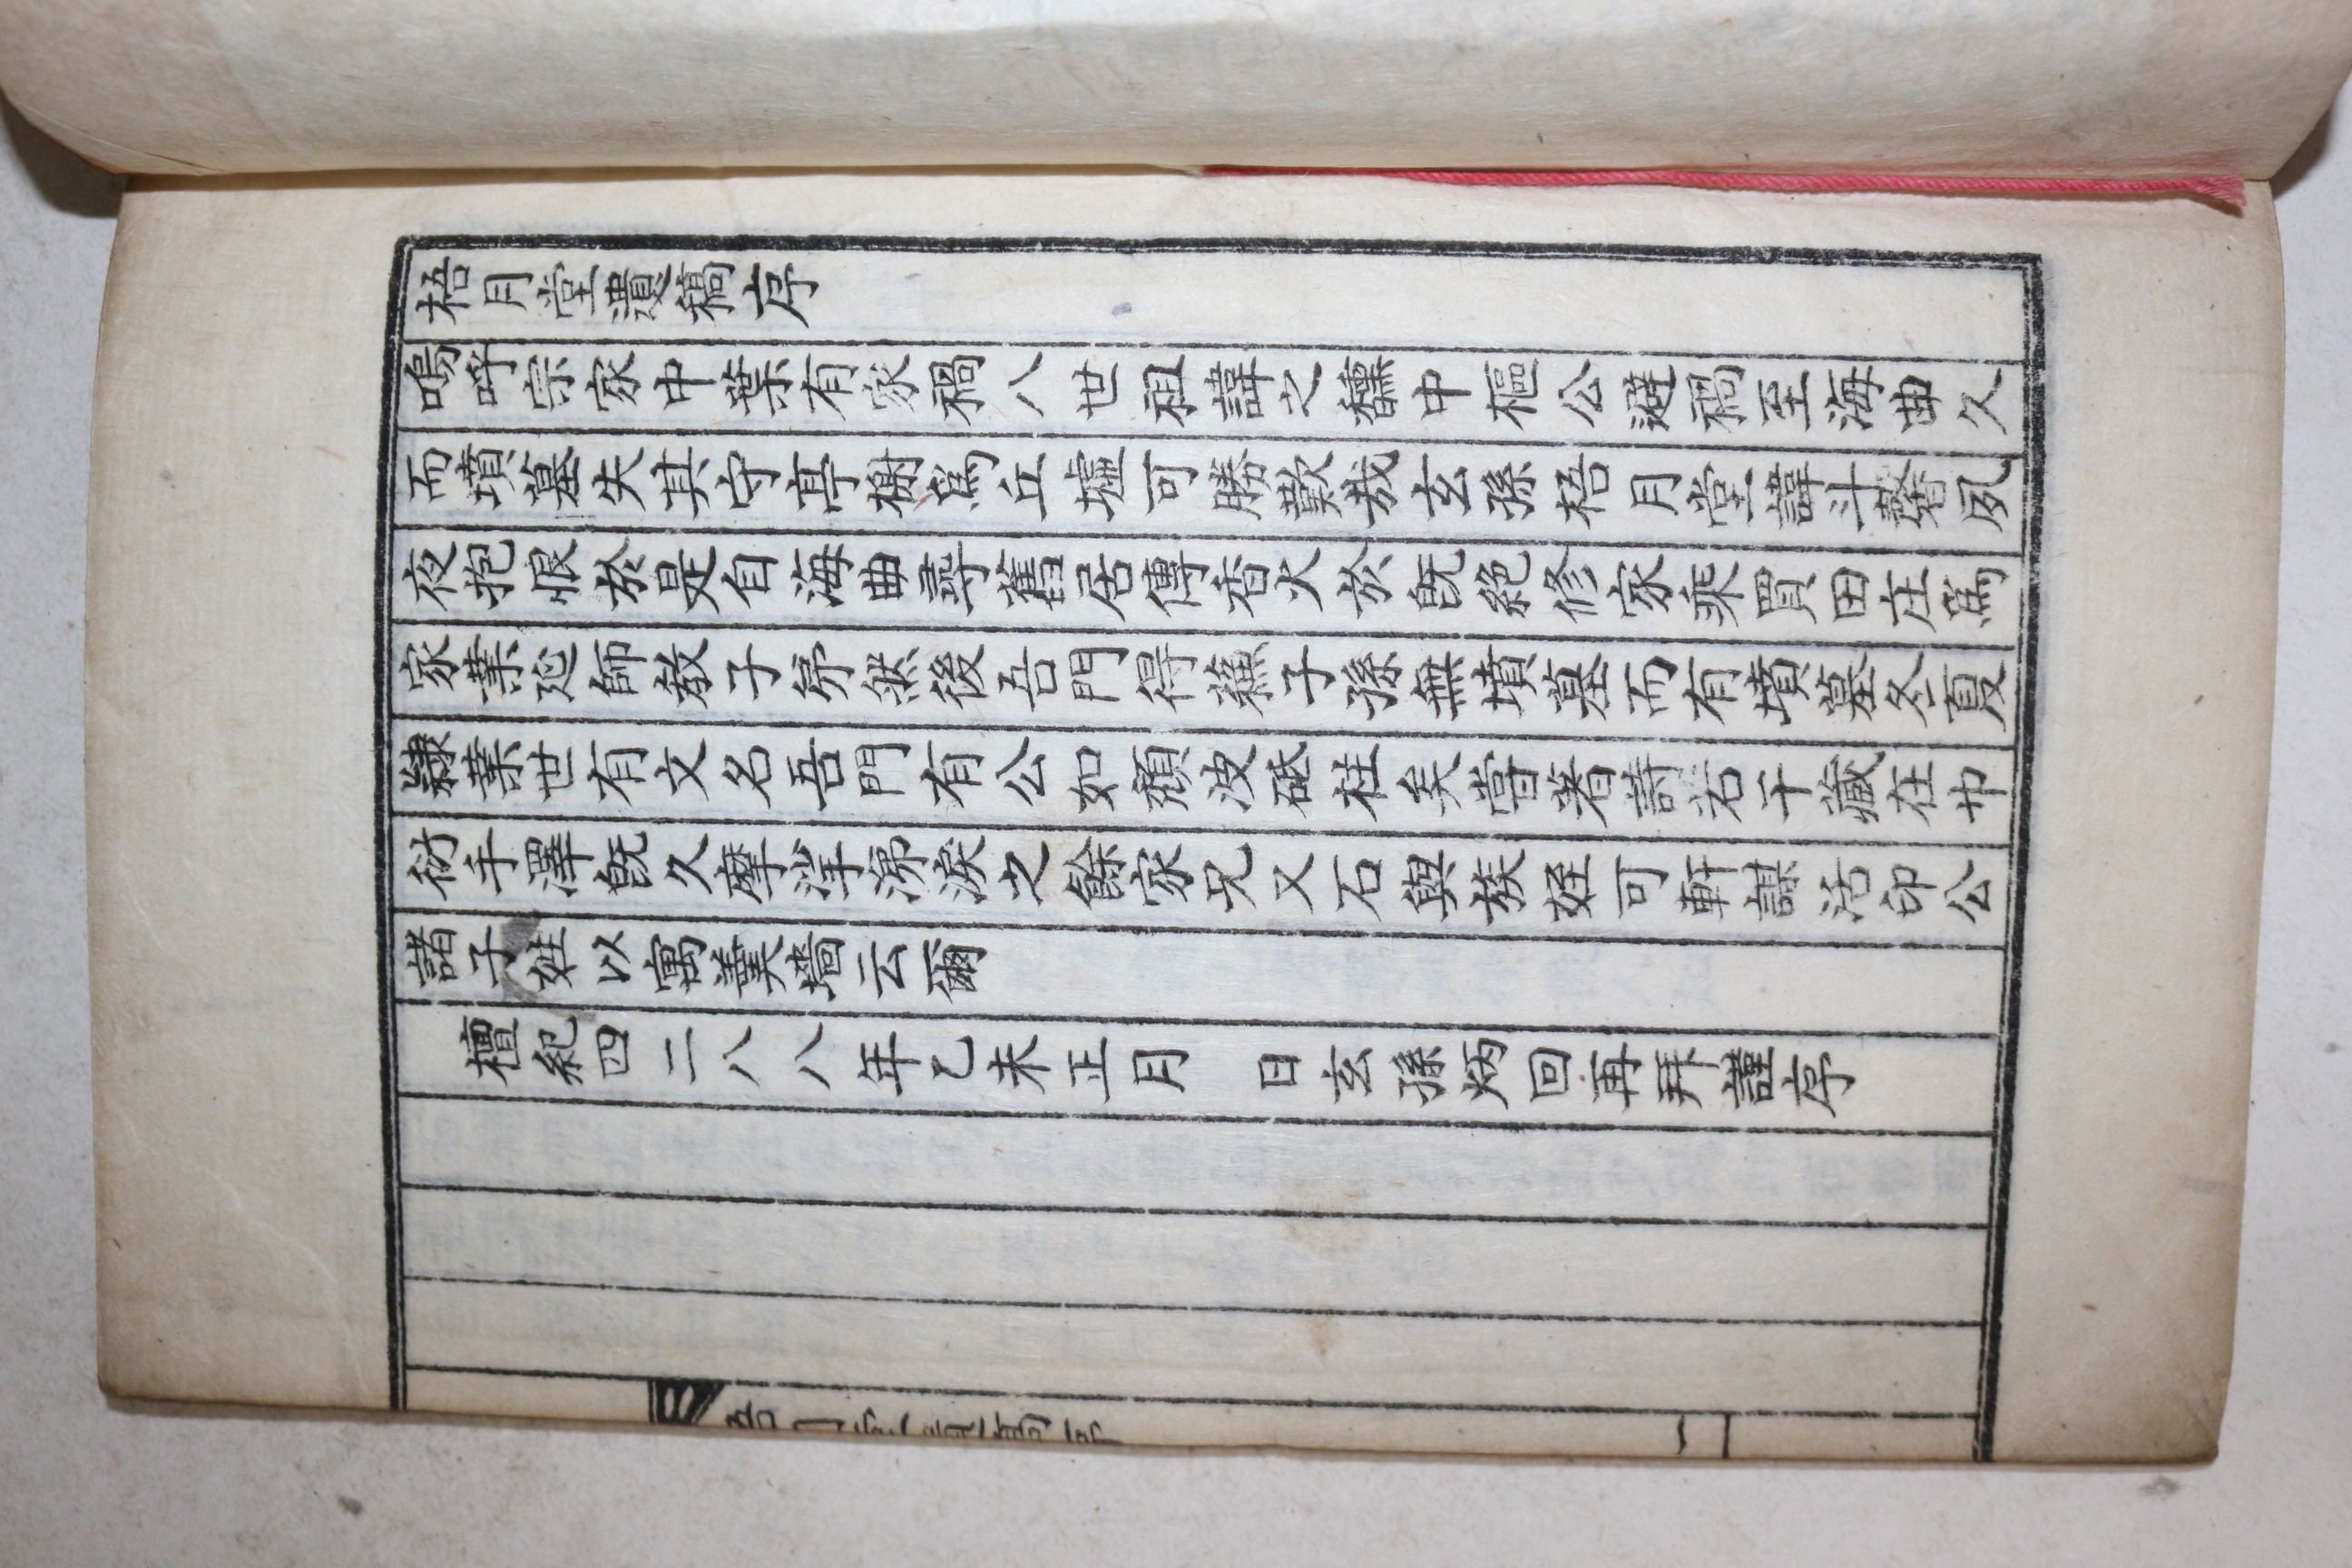 梧月堂遺稿序
嗚呼宗家中葉有家禍八世祖諱之馨中樞公避禍至海曲久
而墳墓失其守亭榭爲丘墟可勝歎哉玄孫梧月堂諱斗馨夙
夜抱恨於是自海曲尋舊居傳香火於旣絶修家乘買田庄爲
家業延師敎子弟然後吾門得蘓子孫無墳墓而有墳墓冬夏
隸業世有文名吾門有公如頹波砥柱矣嘗著詩若干藏在巾
衍手澤旣久摩挲涕淚之餘家兄又石與族姪可軒謀活印公
諸子姓以寓羹墻云爾
檀紀四二八八年乙未正月 日玄孫炳回再拜謹序
梧月堂遺稿序
一